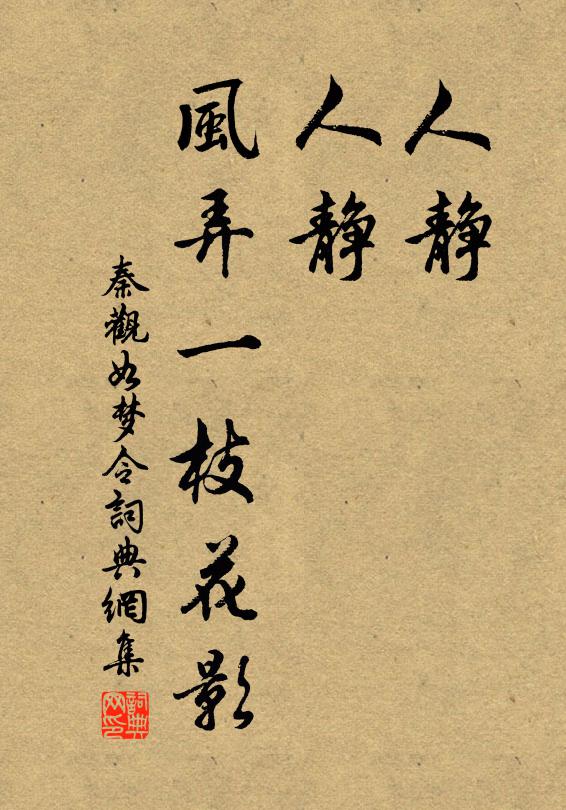 人静
人静
風弄一枝花影
秦觀如梦令詞典網集
詞典网印